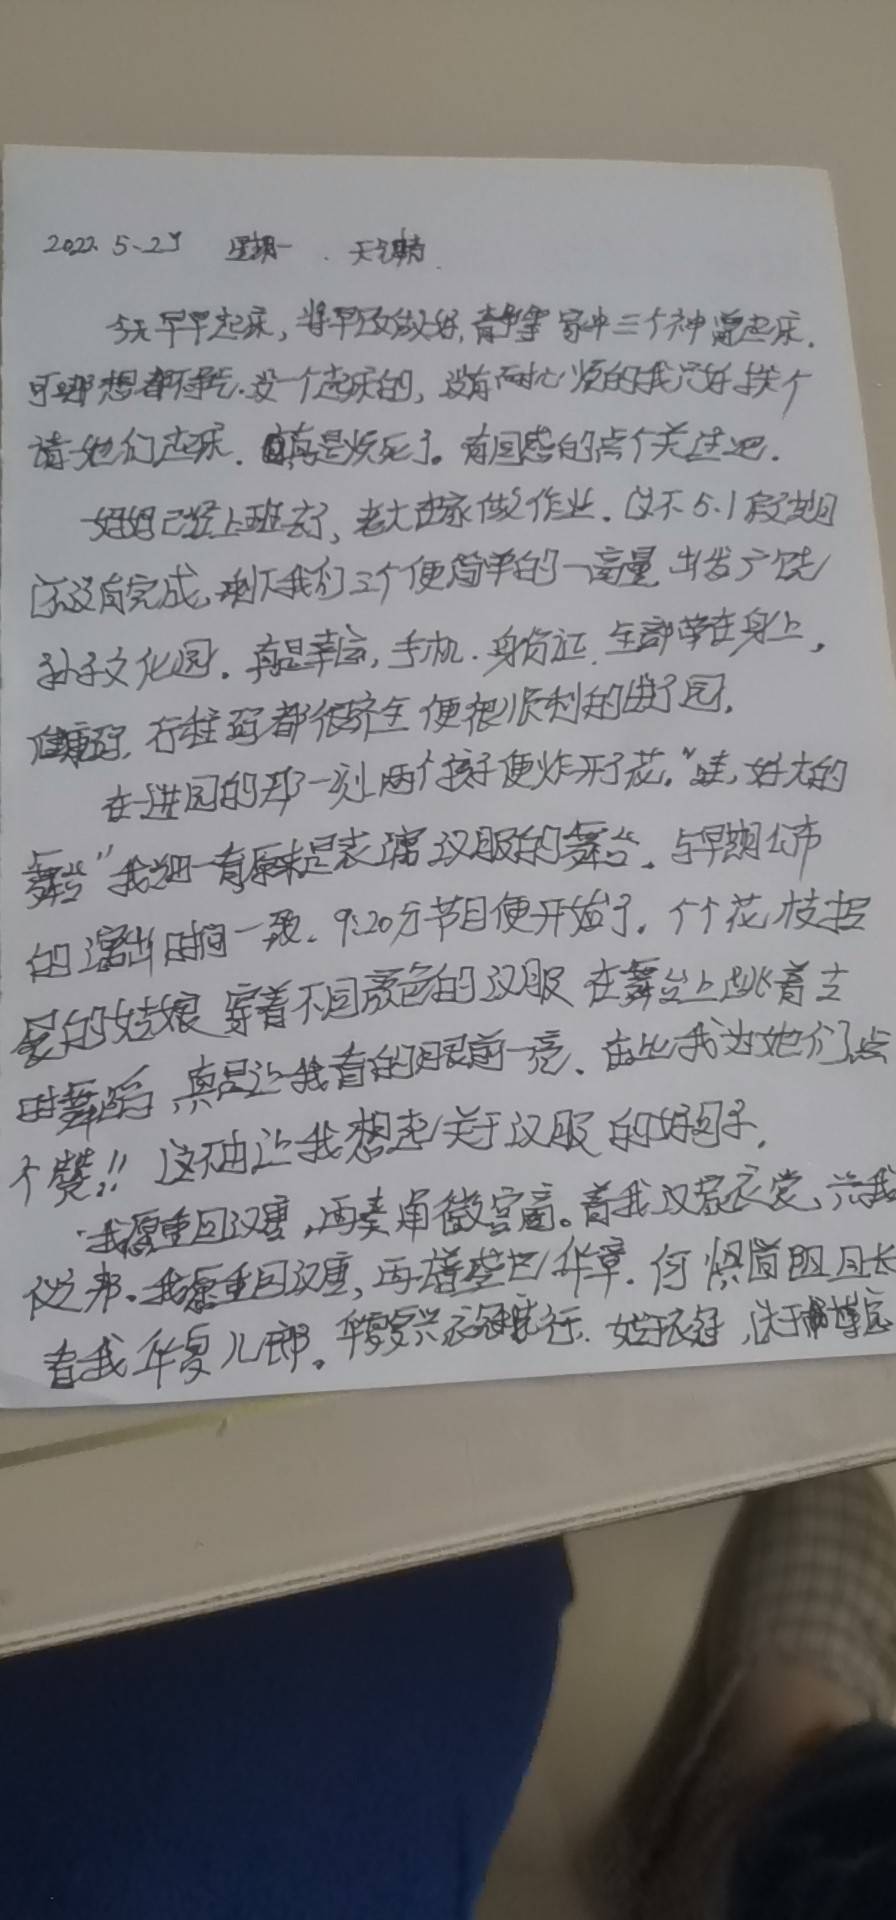 2022.5.2日 星期一 . 天气晴.
今天早早起床,将早饭做好,静等家中三个神兽起床.
可哪想都.没一个起床的,没有耐心烦的我只好挨个
请她们起床.真是烦死了。有同感的点个关注吧.
妈妈已经上班去了,老大在家做作业.这不5.1假期
还没有完成,剩下我们三个便简单的一商量出发广饶
孙子文化园.真是幸运,手机.身份证.全部带在身上,
健康码,行程码都很齐全便很顺利的进了园.
在进园的那一刻两个孩子便炸开了花."哇,好大的
舞台"我细一看原来是表演汉服的舞台.与早期公布
的演出时间一致.9:20分节目便开始了.个个花枝招
展的姑娘穿着不同颜色的汉服在舞台上跳着古
舞蹈,真是让我看的眼前一亮.在此我为她们点
个赞!!这不由让我想起关于汉服的好句子.
"我愿重回汉唐,再奏角徵宫商。着我汉家衣裳,兴我
仪之邦。我愿重回汉唐,再谱盛世华章.何惧道阻且长
看我华夏儿郎。华夏复兴衣冠先行.始于衣冠,达于博远